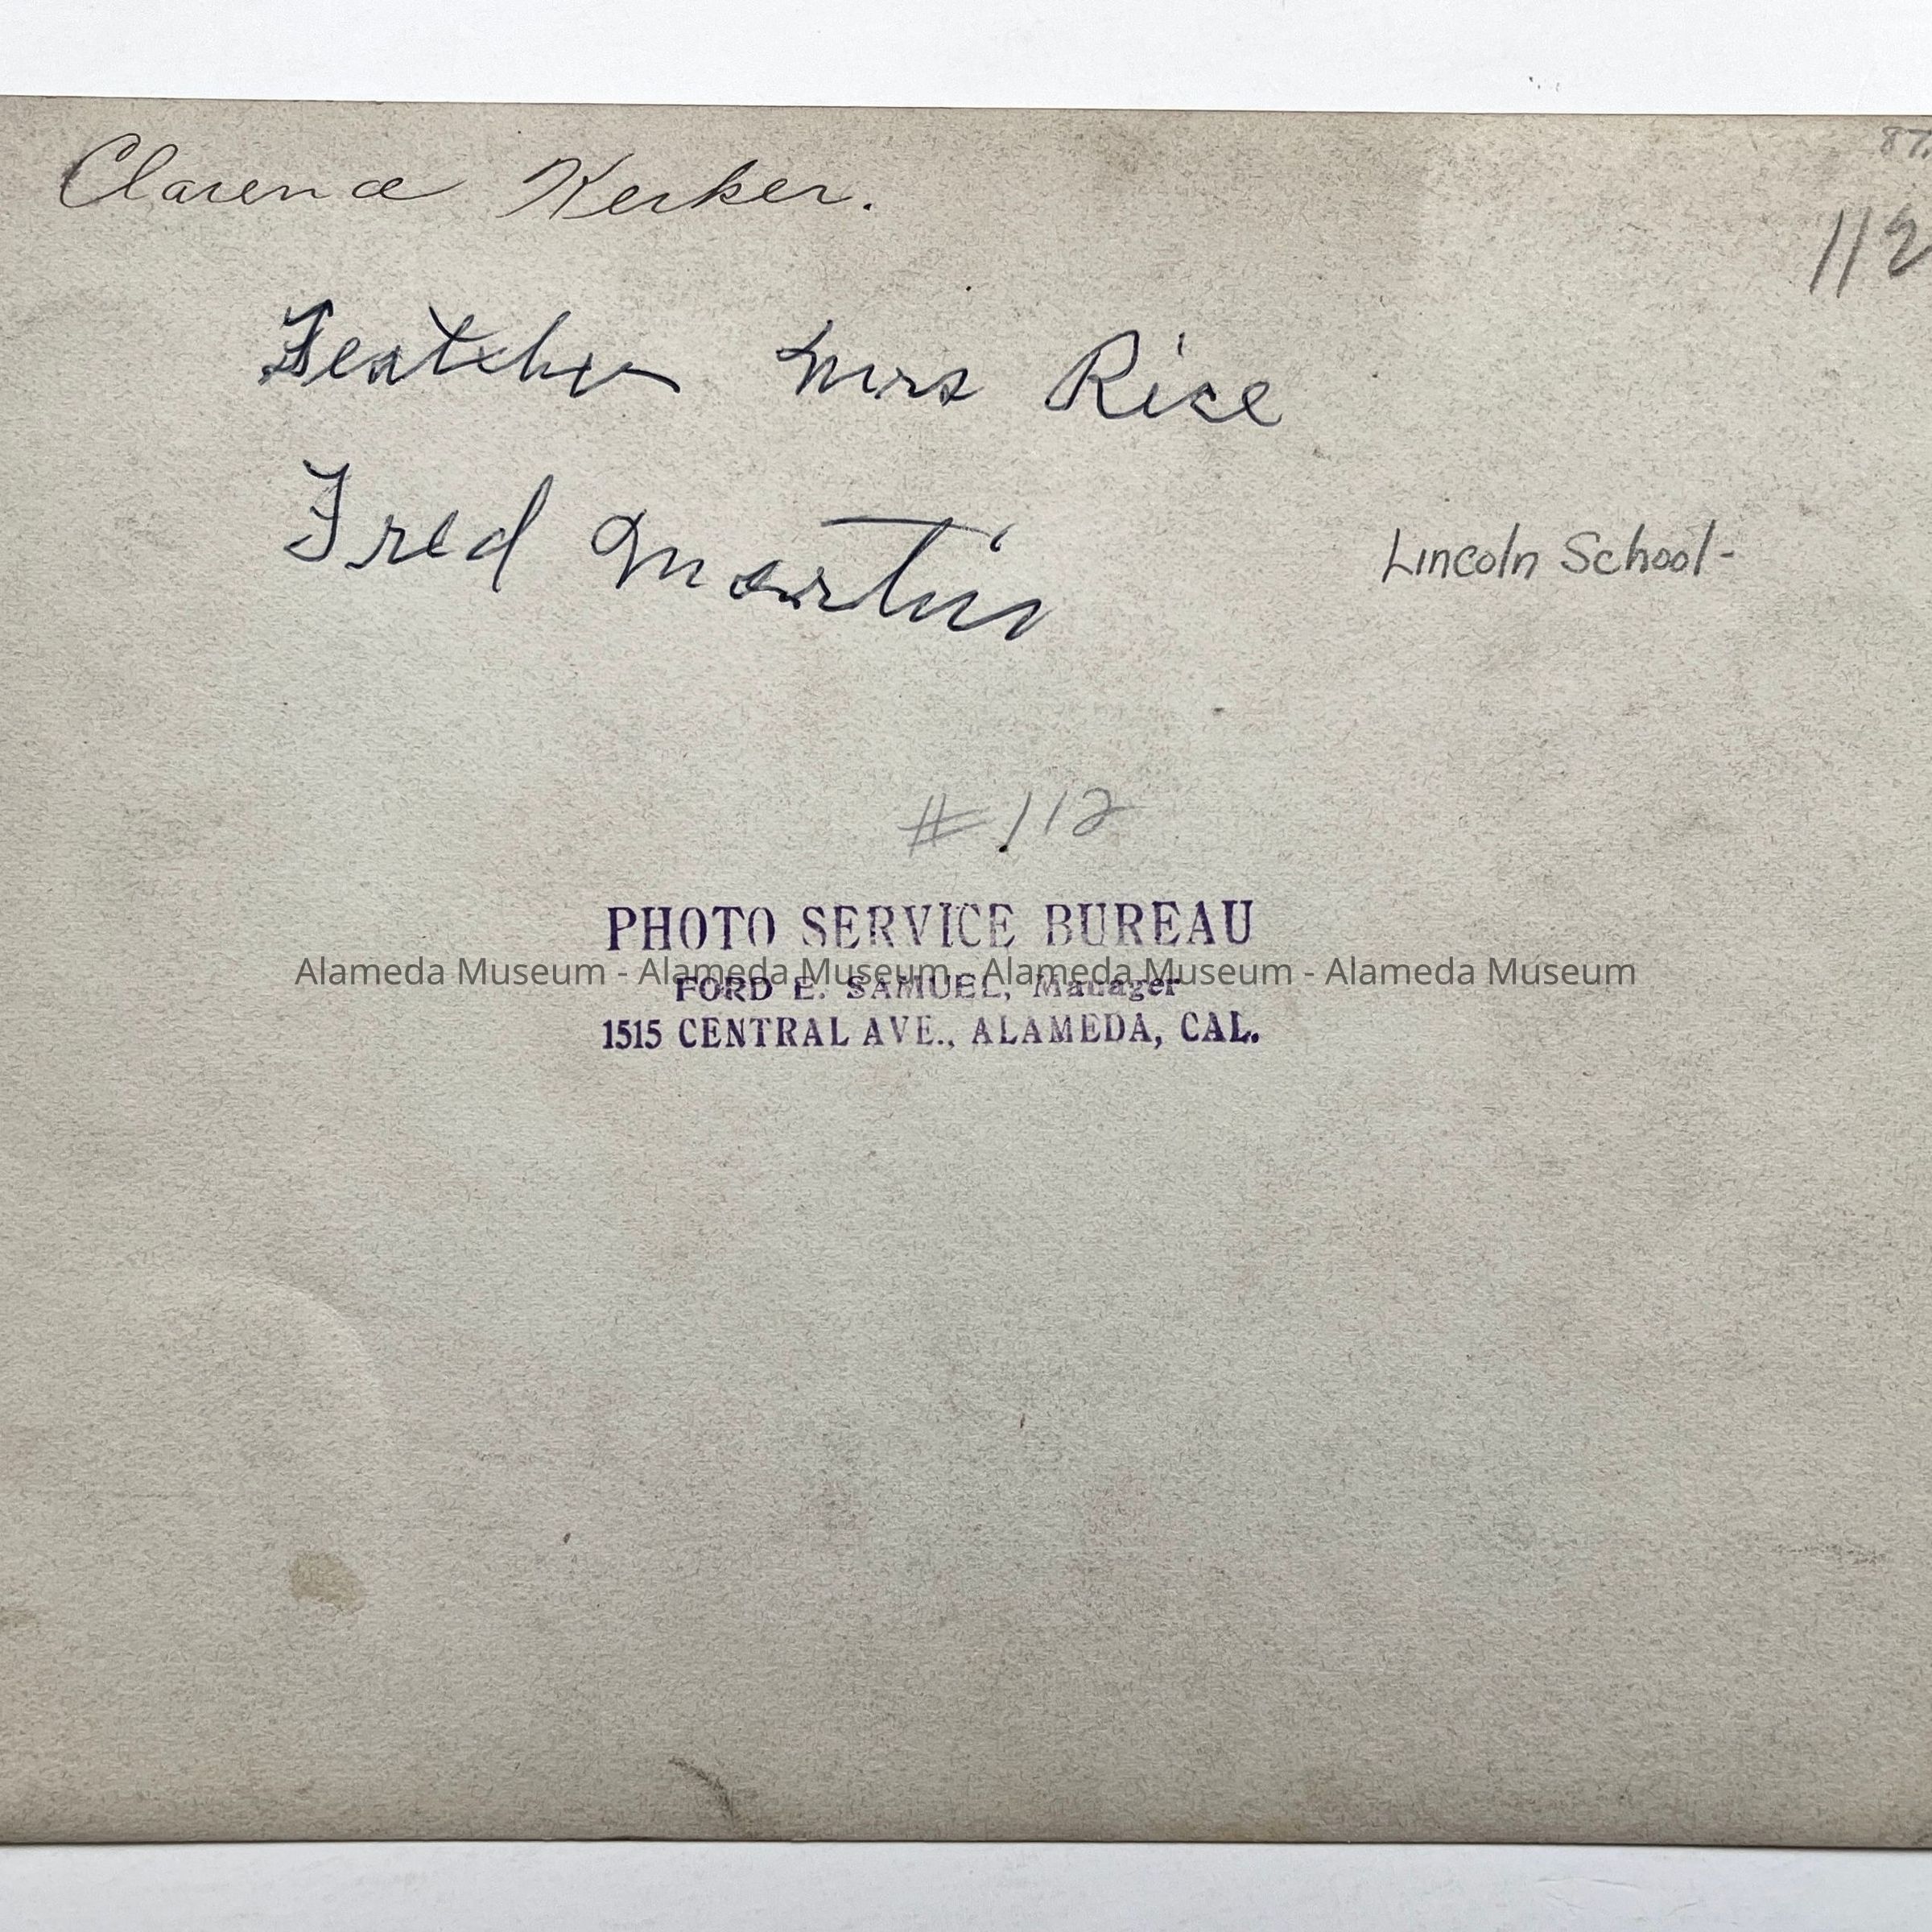 87.
Clarence Kerker.
112
Teatcher Mrs Rice
Fred Martin
Lincoln School-
# 112
PHOTO SERVICE BUREAU
Alameda Museum - Alameda Museum - Alameda Museum - Alameda Museum
FORD E. SAMUEL, Manager
1515 CENTRAL AVE., ALAMEDA, CAL.